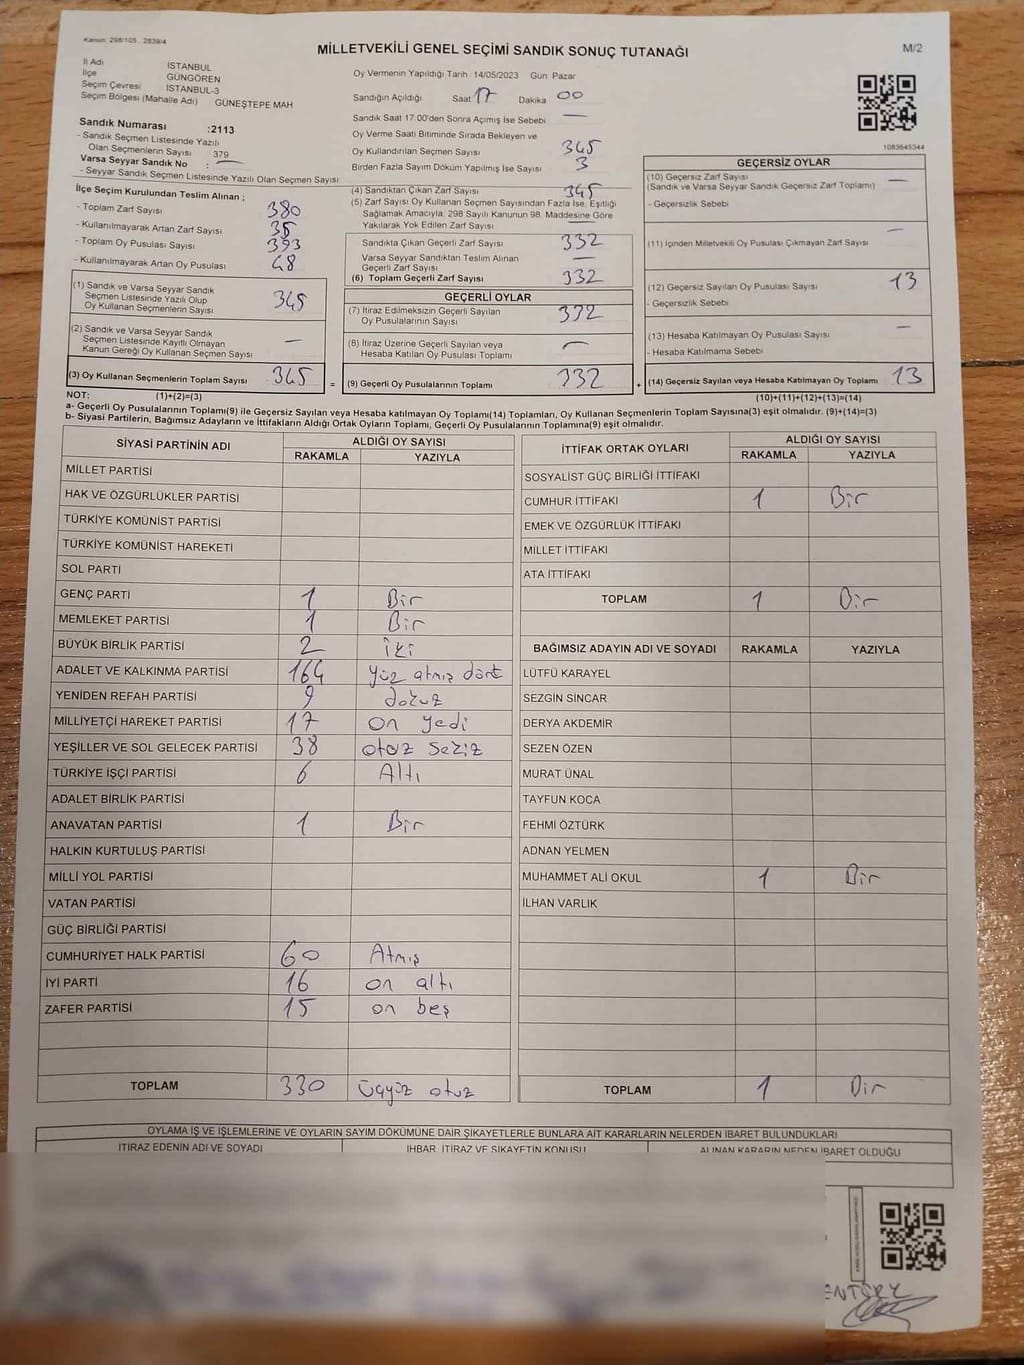 Kanun: 298/105 , 2839/4
MİLLETVEKİLİ GENEL SEÇİMİ SANDIK SONUÇ TUTANAĞI
M/2
İl Adı İSTANBUL
İlçe GÜNGÖREN
Seçim Çevresi İSTANBUL-3
Seçim Bölgesi (Mahalle Adı) GÜNEŞTEPE MAH
Sandık Numarası :2113
- Sandık Seçmen Listesinde Yazılı
Olan Seçmenlerin Sayısı : 379
Varsa Seyyar Sandık No : —
- Seyyar Sandık Seçmen Listesinde Yazılı Olan Seçmen Sayısı
İlçe Seçim Kurulundan Teslim Alınan ;
- Toplam Zarf Sayısı 380
- Kullanılmayarak Artan Zarf Sayısı 35
- Toplam Oy Pusulası Sayısı 393
- Kullanılmayarak Artan Oy Pusulası 48
(1) Sandık ve Varsa Seyyar Sandık
Seçmen Listesinde Yazılı Olup
Oy Kullanan Seçmenlerin Sayısı 345
(2) Sandık ve Varsa Seyyar Sandık
Seçmen Listesinde Kayıtlı Olmayan
Kanun Gereği Oy Kullanan Seçmen Sayısı —
(3) Oy Kullanan Seçmenlerin Toplam Sayısı 345 =
Oy Vermenin Yapıldığı Tarih 14/05/2023 Gün Pazar
Sandığın Açıldığı Saat 17 Dakika 00
Sandık Saat 17:00'den Sonra Açımış İse Sebebi —
Oy Verme Saati Bitiminde Sırada Bekleyen ve
Oy Kullandırılan Seçmen Sayısı 345
Birden Fazla Sayım Döküm Yapılmış İse Sayısı 3
(4) Sandıktan Çıkan Zarf Sayısı 345
(5) Zarf Sayısı Oy Kullanan Seçmen Sayısından Fazla İse, Eşitliği
Sağlamak Amacıyla; 298 Sayılı Kanunun 98. Maddesine Göre
Yakılarak Yok Edilen Zarf Sayısı —
Sandıkta Çıkan Geçerli Zarf Sayısı 332
Varsa Seyyar Sandıktan Teslim Alınan
Geçerli Zarf Sayısı —
(6) Toplam Geçerli Zarf Sayısı 332
GEÇERLİ OYLAR
(7) İtiraz Edilmeksizin Geçerli Sayılan
Oy Pusulalarının Sayısı 332
(8) İtiraz Üzerine Geçerli Sayılan veya
Hesaba Katılan Oy Pusulası Toplamı —
(9) Geçerli Oy Pusulalarının Toplamı 332 +
1083645344
GEÇERSİZ OYLAR
(10) Geçersiz Zarf Sayısı —
(Sandık ve Varsa Seyyar Sandık Geçersiz Zarf Toplamı)
- Geçersizlik Sebebi
(11) İçinden Milletvekili Oy Pusulası Çıkmayan Zarf Sayısı —
(12) Geçersiz Sayılan Oy Pusulası Sayısı 13
- Geçersizlik Sebebi
(13) Hesaba Katılmayan Oy Pusulası Sayısı —
- Hesaba Katılmama Sebebi
(14) Geçersiz Sayılan veya Hesaba Katılmayan Oy Toplamı 13
NOT: (1)+(2)=(3) (10)+(11)+(12)+(13)=(14)
a- Geçerli Oy Pusulalarının Toplamı(9) ile Geçersiz Sayılan veya Hesaba katılmayan Oy Toplamı(14) Toplamları, Oy Kullanan Seçmenlerin Toplam Sayısına(3) eşit olmalıdır. (9)+(14)=(3)
b- Siyasi Partilerin, Bağımsız Adayların ve İttifakların Aldığı Ortak Oyların Toplamı, Geçerli Oy Pusulalarının Toplamına(9) eşit olmalıdır.
SİYASİ PARTİNİN ADI ALDIĞI OY SAYISI
RAKAMLA YAZIYLA
MİLLET PARTİSİ
HAK VE ÖZGÜRLÜKLER PARTİSİ
TÜRKİYE KOMÜNİST PARTİSİ
TÜRKİYE KOMÜNİST HAREKETİ
SOL PARTİ
GENÇ PARTİ 1 Bir
MEMLEKET PARTİSİ 1 Bir
BÜYÜK BİRLİK PARTİSİ 2 İki
ADALET VE KALKINMA PARTİSİ 164 yüz atmış dört
YENİDEN REFAH PARTİSİ 9 dokuz
MİLLİYETÇİ HAREKET PARTİSİ 17 on yedi
YEŞİLLER VE SOL GELECEK PARTİSİ 38 otuz sekiz
TÜRKİYE İŞÇİ PARTİSİ 6 Altı
ADALET BİRLİK PARTİSİ
ANAVATAN PARTİSİ 1 Bir
HALKIN KURTULUŞ PARTİSİ
MİLLİ YOL PARTİSİ
VATAN PARTİSİ
GÜÇ BİRLİĞİ PARTİSİ
CUMHURİYET HALK PARTİSİ 60 Atmış
İYİ PARTİ 16 on altı
ZAFER PARTİSİ 15 on beş
TOPLAM 330 üçyüz otuz
İTTİFAK ORTAK OYLARI ALDIĞI OY SAYISI
RAKAMLA YAZIYLA
SOSYALİST GÜÇ BİRLİĞİ İTTİFAKI
CUMHUR İTTİFAKI 1 Bir
EMEK VE ÖZGÜRLÜK İTTİFAKI
MİLLET İTTİFAKI
ATA İTTİFAKI
TOPLAM 1 Bir
BAĞIMSIZ ADAYIN ADI VE SOYADI RAKAMLA YAZIYLA
LÜTFÜ KARAYEL
SEZGİN SİNCAR
DERYA AKDEMİR
SEZEN ÖZEN
MURAT ÜNAL
TAYFUN KOCA
FEHMİ ÖZTÜRK
ADNAN YELMEN
MUHAMMET ALİ OKUL 1 Bir
İLHAN VARLIK
TOPLAM 1 Bir
OYLAMA İŞ VE İŞLEMLERİNE VE OYLARIN SAYIM DÖKÜMÜNE DAİR ŞİKAYETLERLE BUNLARA AİT KARARLARIN NELERDEN İBARET BULUNDUKLARI
İTİRAZ EDENİN ADI VE SOYADI İHBAR, İTİRAZ VE ŞİKAYETİN KONUSU ALINAN KARARIN NEDEN İBARET OLDUĞU